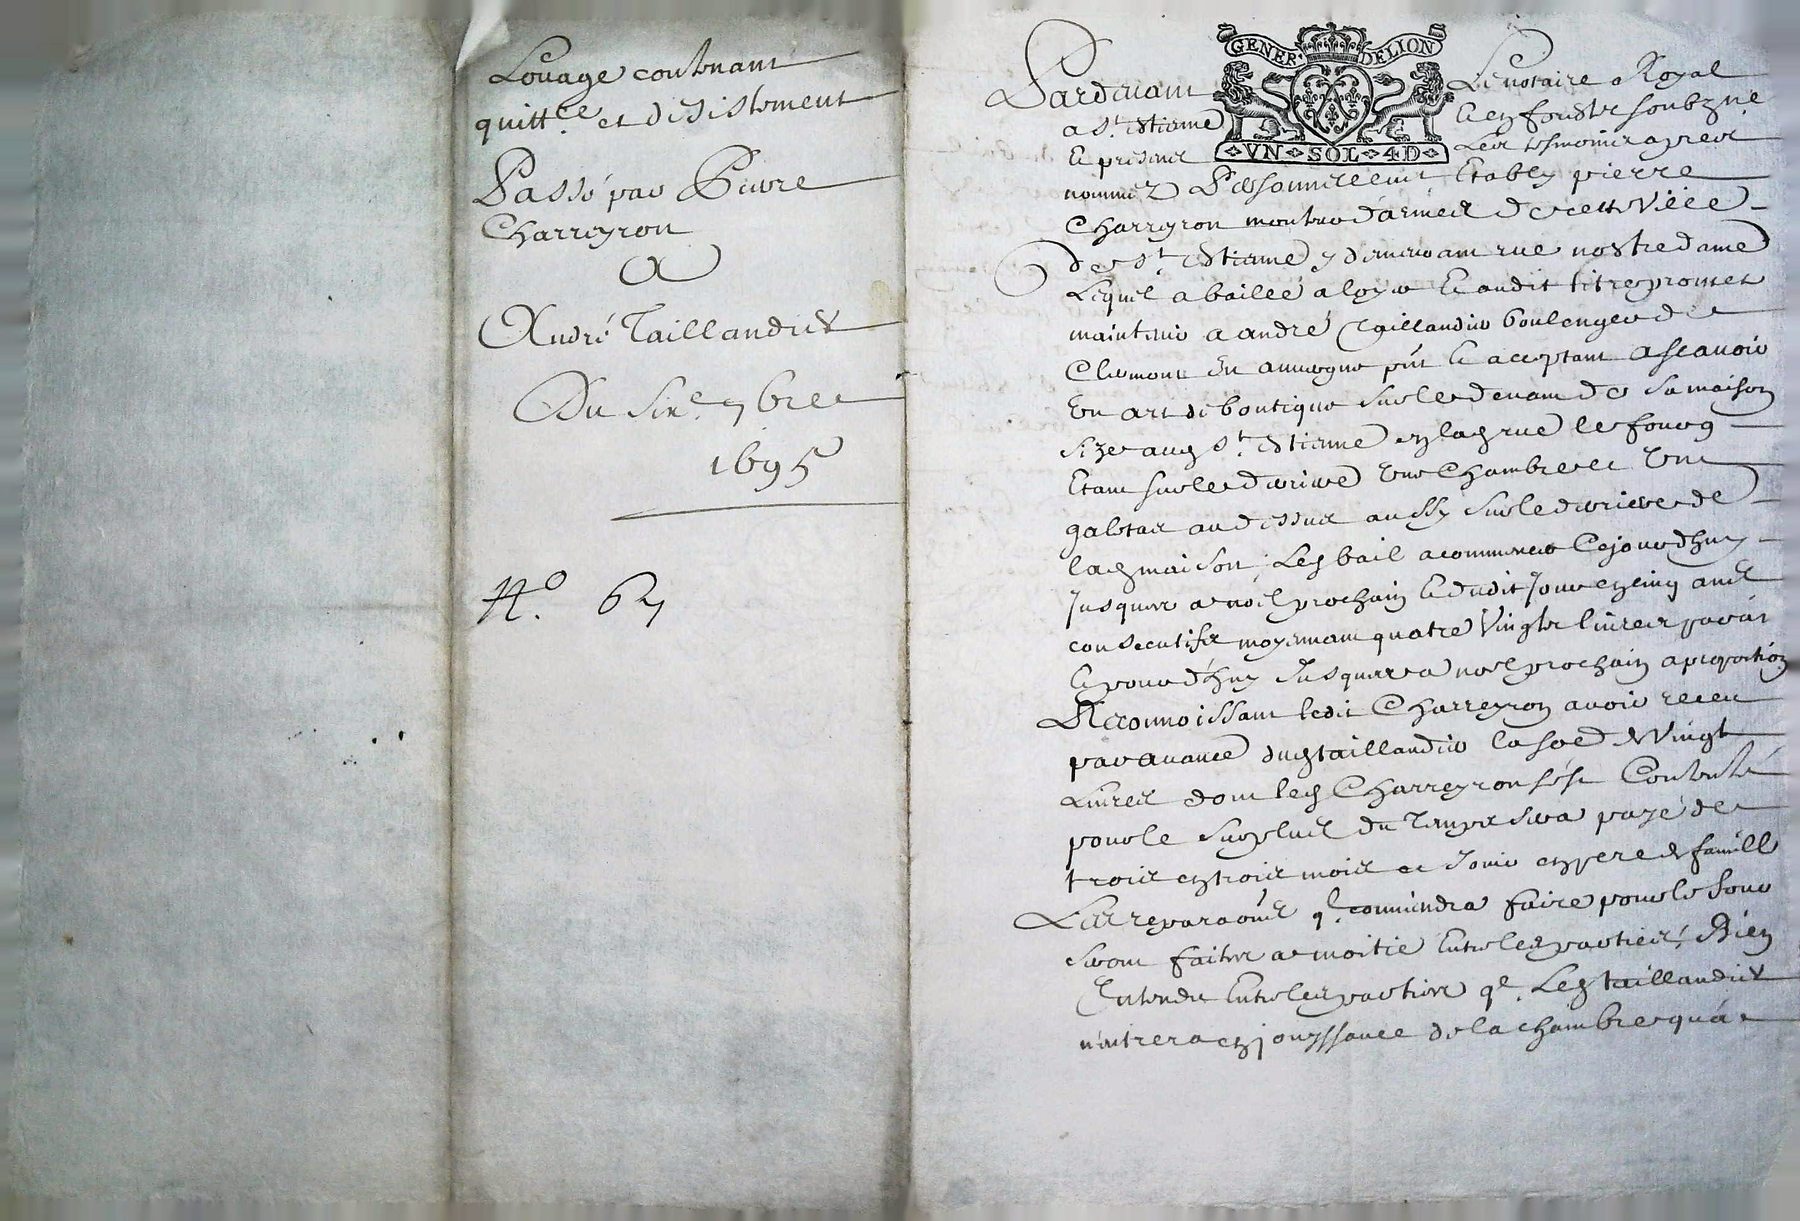 Louage contenant
quitt.ce et desistement
Passé par Pierre
Charreyron
A
André Taillandier
Du sixe 7bre
1695
N.o 67
GENER. DELION
VN SOL 4D
Pardevant Le notaire Royal
a St Estienne et en forestz soubz.né
et presens les tesmoins apres
nommez Personnellemt Estably pierre
Charreyron maistre d'armes de cette Ville
de St Estienne y demeurant rue nostre dame
Lequel a baillé a loyer et audit titre promet
maintenir a andré Taillandier boulenger de
Clermont en auvergne pnt et acceptant a scavoir
Un art de boutique sur le devant de sa maison
size aud St Estienne en lad rue le fourg
Estant sur le derriere Une Chambre et Un
galetas au dessus aussy sur le derriere de
lad maison, Led bail a commencer Cejourdhuy
Jusques a noel prochain et dudit Jour en cinq ans
consecutifs moyennant quatre Vingts livres par an
Cejourd'huy Jusques a noel prochain a proportion
Reconnoissant ledit Charreyron avoir receu
par avance dud taillandier la soe de Vingt
Livres dont led Charreyron s'est Contenté
pour le surplus du temps sera payé de
trois en trois mois et Jouir en pere de famille
Les reparaons ql conviendra faire pour le four
seront faites a moitié entre les parties, Bien
Entendu Entre les parties qe Led taillandier
n'entrera en jouyssance de la chambre qu'a